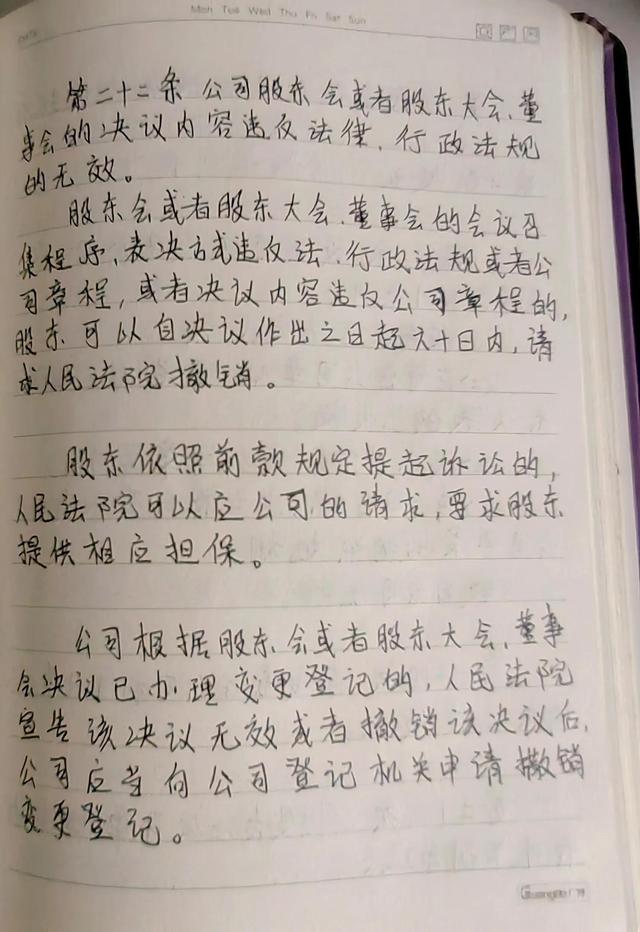 Mon Tue Wed Thu Fri Sat Sun
第二十二条 公司股东会或者股东大会、董
事会的决议内容违反法律、行政法规
的无效。
股东会或者股东大会、董事会的会议召
集程序、表决方式违反法、行政法规或者公
司章程，或者决议内容违反公司章程的，
股东可以自决议作出之日起六十日内，请
求人民法院撤销。
股东依照前款规定提起诉讼的，
人民法院可以应公司的请求，要求股东
提供相应担保。
公司根据股东会或者股东大会、董事
会决议已办理变更登记的，人民法院
宣告该决议无效或者撤销该决议后，
公司应当向公司登记机关申请撤销
变更登记。